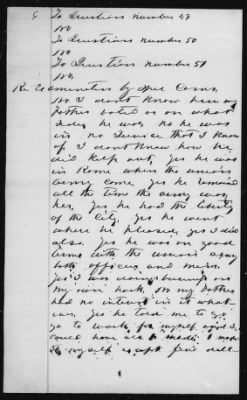 6 To Questions number 49
No
To Questions number 50
No
To Questions number 51
No
Re Examination by Spe Com.
No I dont know how my
father voted or on what
side he was no he was
in no Service that I know
of I dont know how he
did Keep out, yes he was
in Rome when the union
army come, yes he remained
all the time the army was
her, yes he had the liberty
of the City, yes he went
where he pleased, yes I did
also. yes he was on good
terms with the union army
both officers and men.
yes I was doing business on
my own hook. no my father
had no interest in it what
ever, yes he told me to go
go to work for myself and I
could have all I made. I made
it my self except